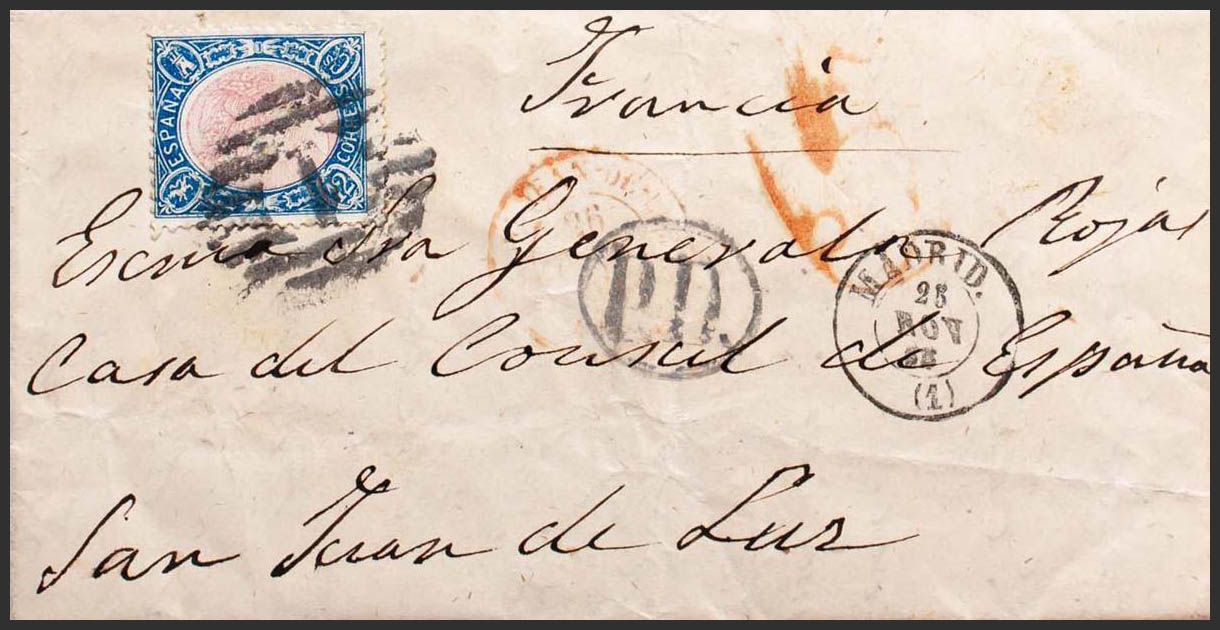 Francia
ESPAÑA
CORREOS
12
Escma Sra Generala Rojas
Casa del Consul de España
San Juan de Luz
P.D.
MADRID.
25
NOV
(1)